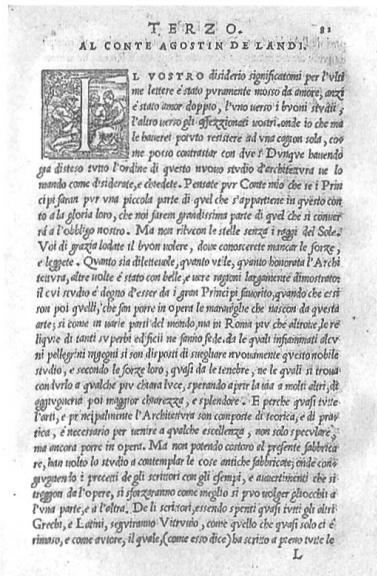 TERZO. 81
AL CONTE AGOSTIN DE LANDI.
IL VOSTRO disiderio significatomi per l'vlti
me lettere è stato pvramente mosso da amore, anzi
è stato amor doppio, l'vno verso i bvoni stvdii,
l'altro verso gli affezzionati vostri. onde io che ma
le haverei potvto resistere ad vna cagion sola, co-
me posso contrastar con dve? Dvnqve havendo
gia disteso tvtto l'ordine di qvesto nvovo stvdio d'architettvra ve lo
mando come disiderate, e chiedete. Pensate pvr Conte mio che se i Prin
cipi faran pvr vna piccola parte di qvel che s'appartiene in qvesto con
to a la gloria loro, che noi farem grandissima parte di qvel che si conver
rà a l'obligo nostro. Ma non rilvcon le stelle senza i raggi del Sole.
Voi di grazia lodate il bvon volere, dove conoscerete mancar le forze,
e leggete. Qvanto sia dilettevole, qvanto vtile, qvanto honorata l'Archi
tettvra, altre volte è stato con belle, e vere ragioni largamente dimostrato:
il cvi stvdio è degno d'esser da i gran Principi favorito, qvando che essi
son poi qvelli, che fan porre in opera le maraviglie che nascon da qvesta
arte; sì come in varie parti del mondo, ma in Roma piv che altrove, le re
liqvie di tanti svperbi edificii ne fanno fede. da le qvali infiammati alcv
ni pellegrini ingegni si son disposti di svegliare nvovamente qvesto nobile
stvdio, e secondo le forze loro, qvasi da le tenebre, ne le qvali si trova
condvrlo a qvalche piv chiara lvce, sperando aprir la via a molti altri, di
aggivgnervi poi maggior chiarezza, e splendore. E perche qvasi tvtte
l'arti, e principalmente l'Architettvra son composte di teorica, e di pra
tica, è necessario per venire a qvalche escellenza, non solo specvlare,
ma ancora porre in opera. Ma non potendo costoro al presente fabbrica
re, han volto lo stvdio a contemplar le cose antiche fabbricate; onde con
givgnendo i precetti de gli scrittori con gli esempi, e avvertimenti che si
traggon da l'opere, si sforzaranno come meglio si pvo volger gliocchi a
l'vna parte, e a l'altra. De li scrittori, essendo spenti qvasi tvtti gli altri
Grechi, e Latini, segviranno Vitrvvio, come qvello che qvasi solo ci è
rimaso, e come avtore, il qvale, (come esso dice) ha scritto a pieno tvtte le
L